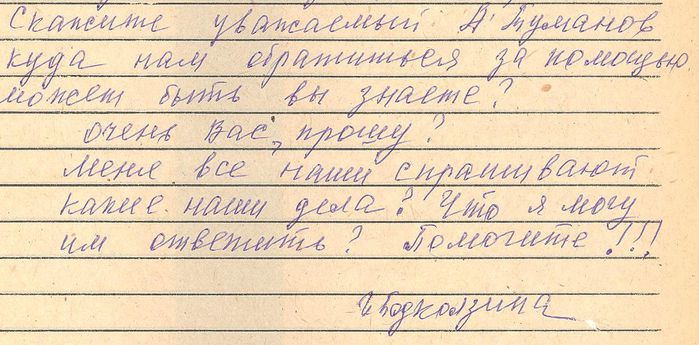 Скажите уважаемый А. Туманов
куда нам обратиться за помощью
может быть вы знаете?
очень Вас, прошу?
меня все наши спрашивают
какие наши дела? Что я могу
им ответить? Помогите!!!
Подколзина